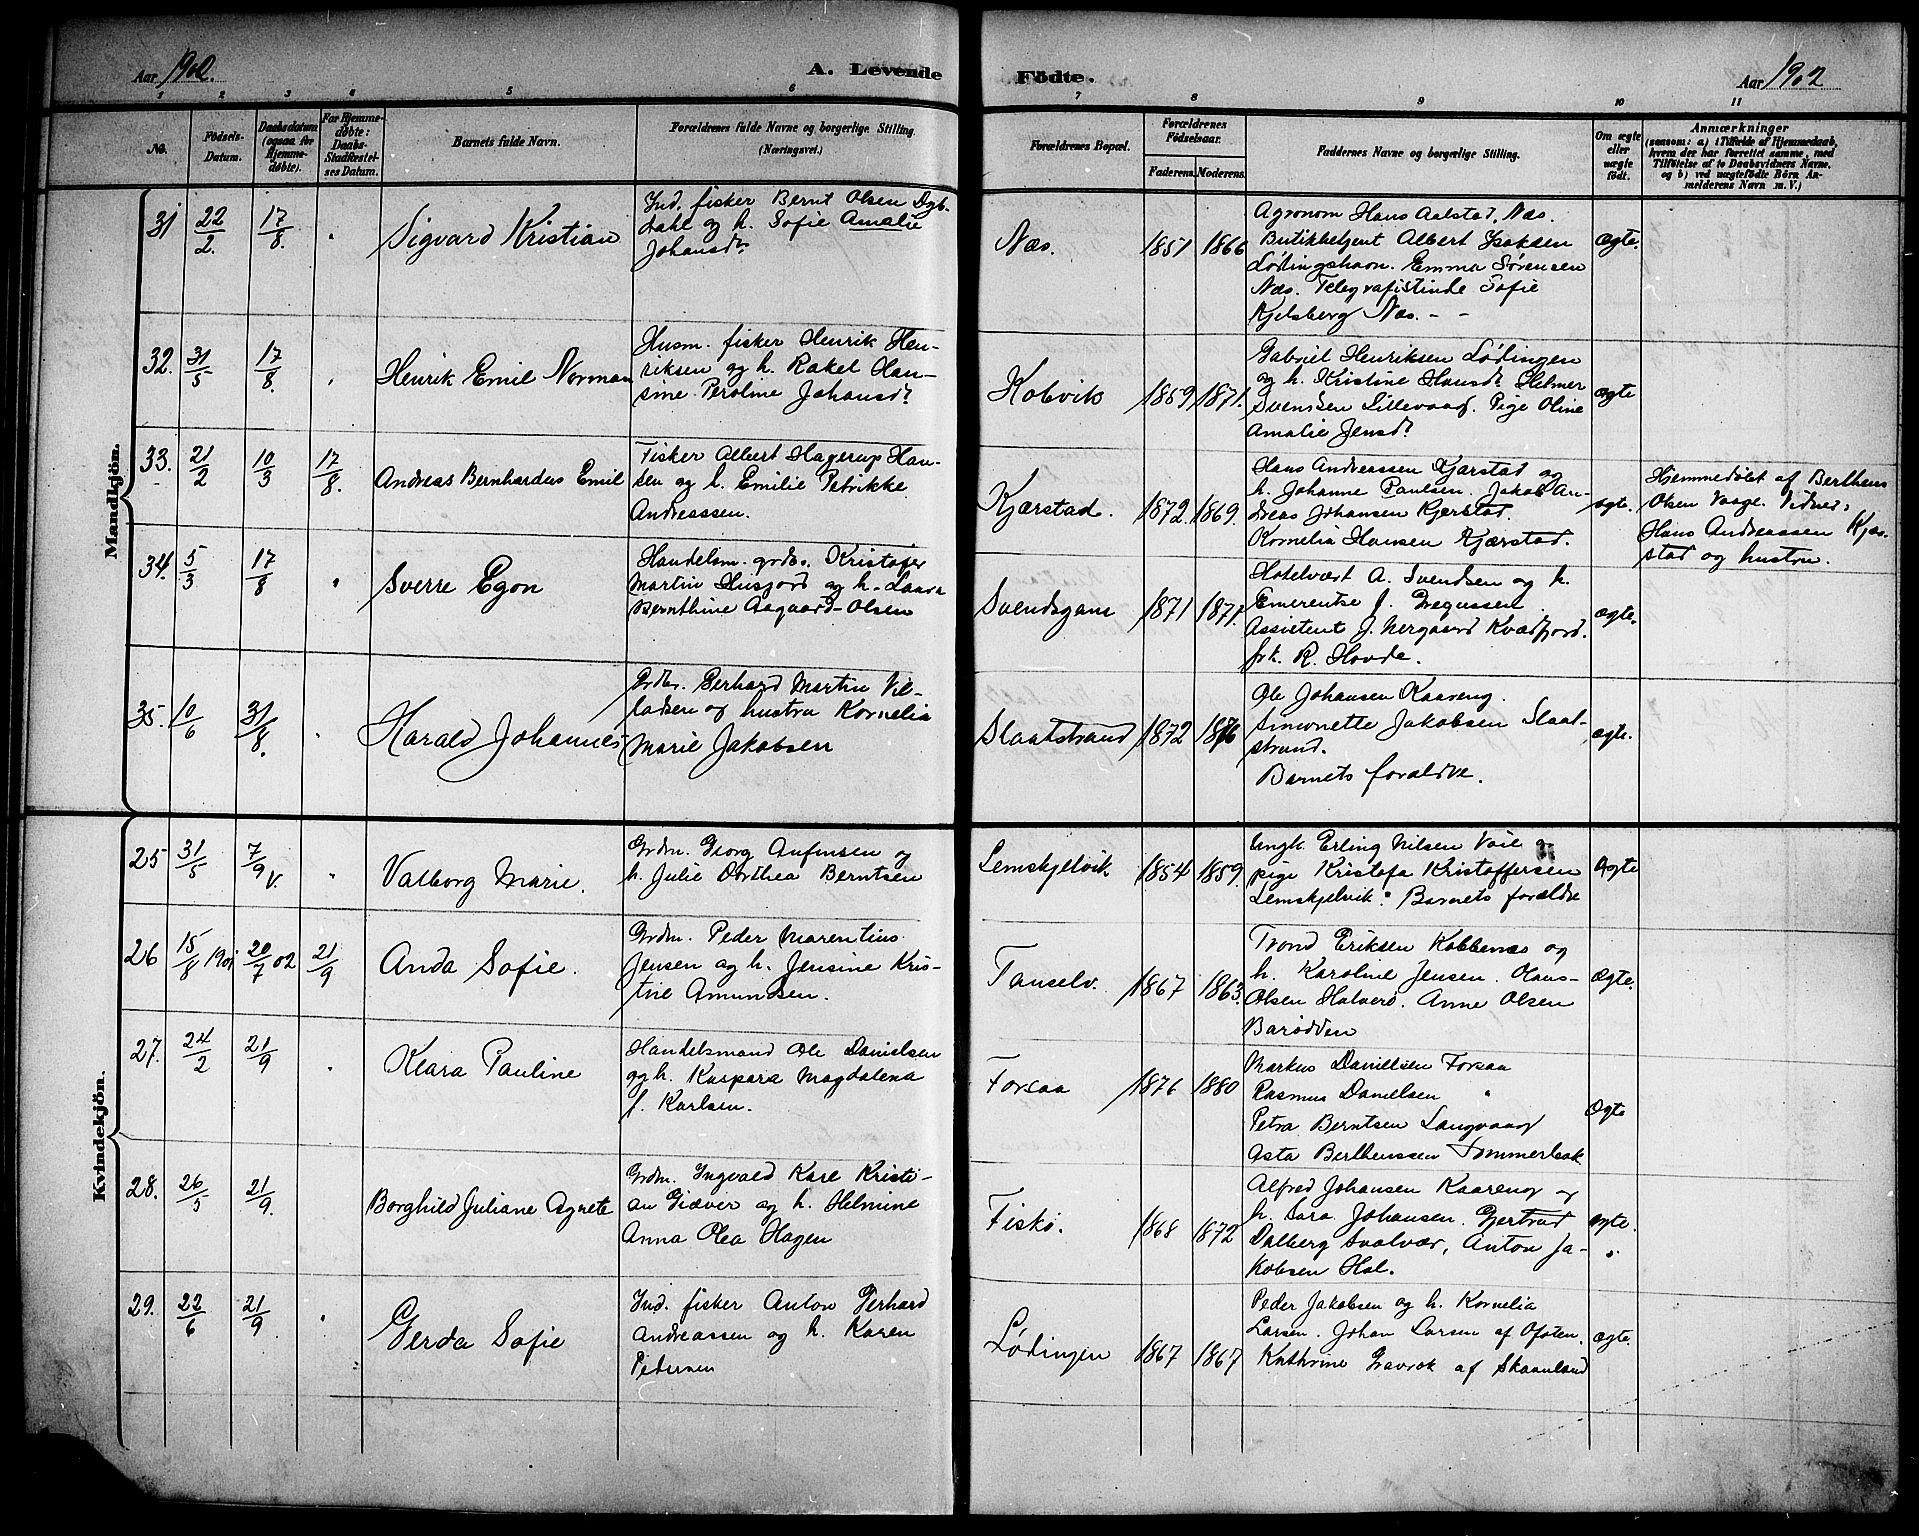 Aar 1902.
A. Levende
Födte.
Aar 1902
1 2 3 4 5 6 7 8 9 10 11
No.
Födsels-
Datum.
Daabsdatum
(ogsaa for
Hjemme-
døbte).
For Hjemme-
døbte:
Daabs-
Stadfæstel-
ses Datum.
Barnets fulde Navn.
Forældrenes fulde Navne og borgerlige Stilling.
(Næringsvei.)
Forældrenes Bopæl.
Forældrenes
Födselsaar.
Faderens. Moderens.
Faddernes Navne og borgerlige Stilling.
Om ægte
eller
uægte
født.
Anmærkninger
(saasom: a) i Tilfælde af Hjemmedaab,
hvem der har forrettet samme, med
Tilföielse af to Daabsvidners Navne,
og b) ved uægtefödte Börn An-
melderens Navn m. V.)
Mandkjön.
31 22/2. 17/8. "
Sigvard Kristian
Ind. fisker Bernt Olsen Dyb-
dahl og h. Sofie Amalie
Johansdr
Næs.
1851 1866
Agronom Hans Aalstad, Næs.
Butikbetjent Albert Isaksen
Lødingshavn. Emma Sørensen
Næs. Telegrafistinde Sofie
Kjelsberg Næs. - -
ægte.
32. 31/5 17/8. "
Henrik Emil Norman
Husm. fisker Henrik Hen-
riksen og h. Rakel Han-
sine Peroline Johansdr
Kobvik
1869 1871.
Gabriel Henriksen Lødingen
og h. Kristine Hansdr Helmer
Svendsen Lillevaag. Pige Oline
Amalie Jensdr
ægte
33. 21/2 10/3 17/8.
Andreas Bernhardus Emil
Fisker Albert Hagerup Han-
sen og h. Emilie Petrikke
Andreassen.
Kjærstad.
1872. 1869.
Hans Andreassen Kjærstad og
h. Johanne Paulsen. Jakob An-
dreas Johansen Kjerstad.
Kornelia Hansen Kjærstad.
ægte.
Hjemmedøbt af Bertheus
Olsen Vaage. Vidner:
Hans Andreassen Kjær-
stad og hustru.
34. 5/3 17/8 "
Sverre Egon
Handelsm. grdbr. Kristofer
Martin Husjord og h. Laura
Bernthine Aagaard-Olsen
Svendsgam
1871 1871.
Hotelvært A. Svendsen og h.
Emerentse f. Gregussen
Assistent J. Nergaard Kvædfjord.
frk. R. Hovde.
ægte.
35. 10/6 31/8. "
Harald Johannes
Grdbr. Gerhard Martin Vil-
ladsen og hustru Kornelia
Marie Jakobsen
Slaatstrand
1872 1876
Ole Johansen Kaareng.
Simonette Jakobsen Slaat-
strand.
Barnets forældre.
ægte.
Kvindekjön.
25 31/5 7/9 "
Valborg Marie.
Grdm. Georg Anfinsen og
h. Julie Dorthea Berntsen
Lemskjelvik
1854 1859.
Ungk. Erling Nilsen Voie og
pige Kristofa Kristoffersen
Lemskjelvik. Barnets forældre
Ægte
26 15/8 1901 20/7 02 21/9
Anda Sofie.
Grdm. Peder Marentius
Jensen og h. Jensine Kris-
tine Amundsen.
Tanselv.
1867 1863.
Trond Eriksen Kobbenes og
h. Karoline Jensen. Hans
Olsen Halverø. Anne Olsen
Barødden
Ægte.
27. 24/2 21/9 "
Klara Pauline
Handelsmand Ole Danielsen
og h. Kaspara Magdalena
f. Karlsen.
Forsaa
1876 1880
Markus Danielsen Forsaa
Rasmus Danielsen "
Petra Berntsen Langvaag
Asta Bertheussen Sommerbak
Ægte
28. 26/5 21/9. "
Borghild Juliane Agnete
Grdm. Ingvald Kare Kristi-
an Giæver og h. Helmine
Anna Olea Hagen
Fiskø.
1868 1872
Alfred Johansen Kaareng og
h. Sara Johansen. Gjertrud
Dalberg Svolvær, Anton Ja-
kobsen Hol.
ægte.
29. 22/6 21/9 "
Gerda Sofie
Ind. fisker Anton Gerhard
Andreassen og h. Karen
Pedersen
Lødingen
1867 1867
Peder Jakobsen og h. Kornelia
Larsen. Johan Larsen af Ofoten.
Kathrine Gavrok af Skaanland
ægte.